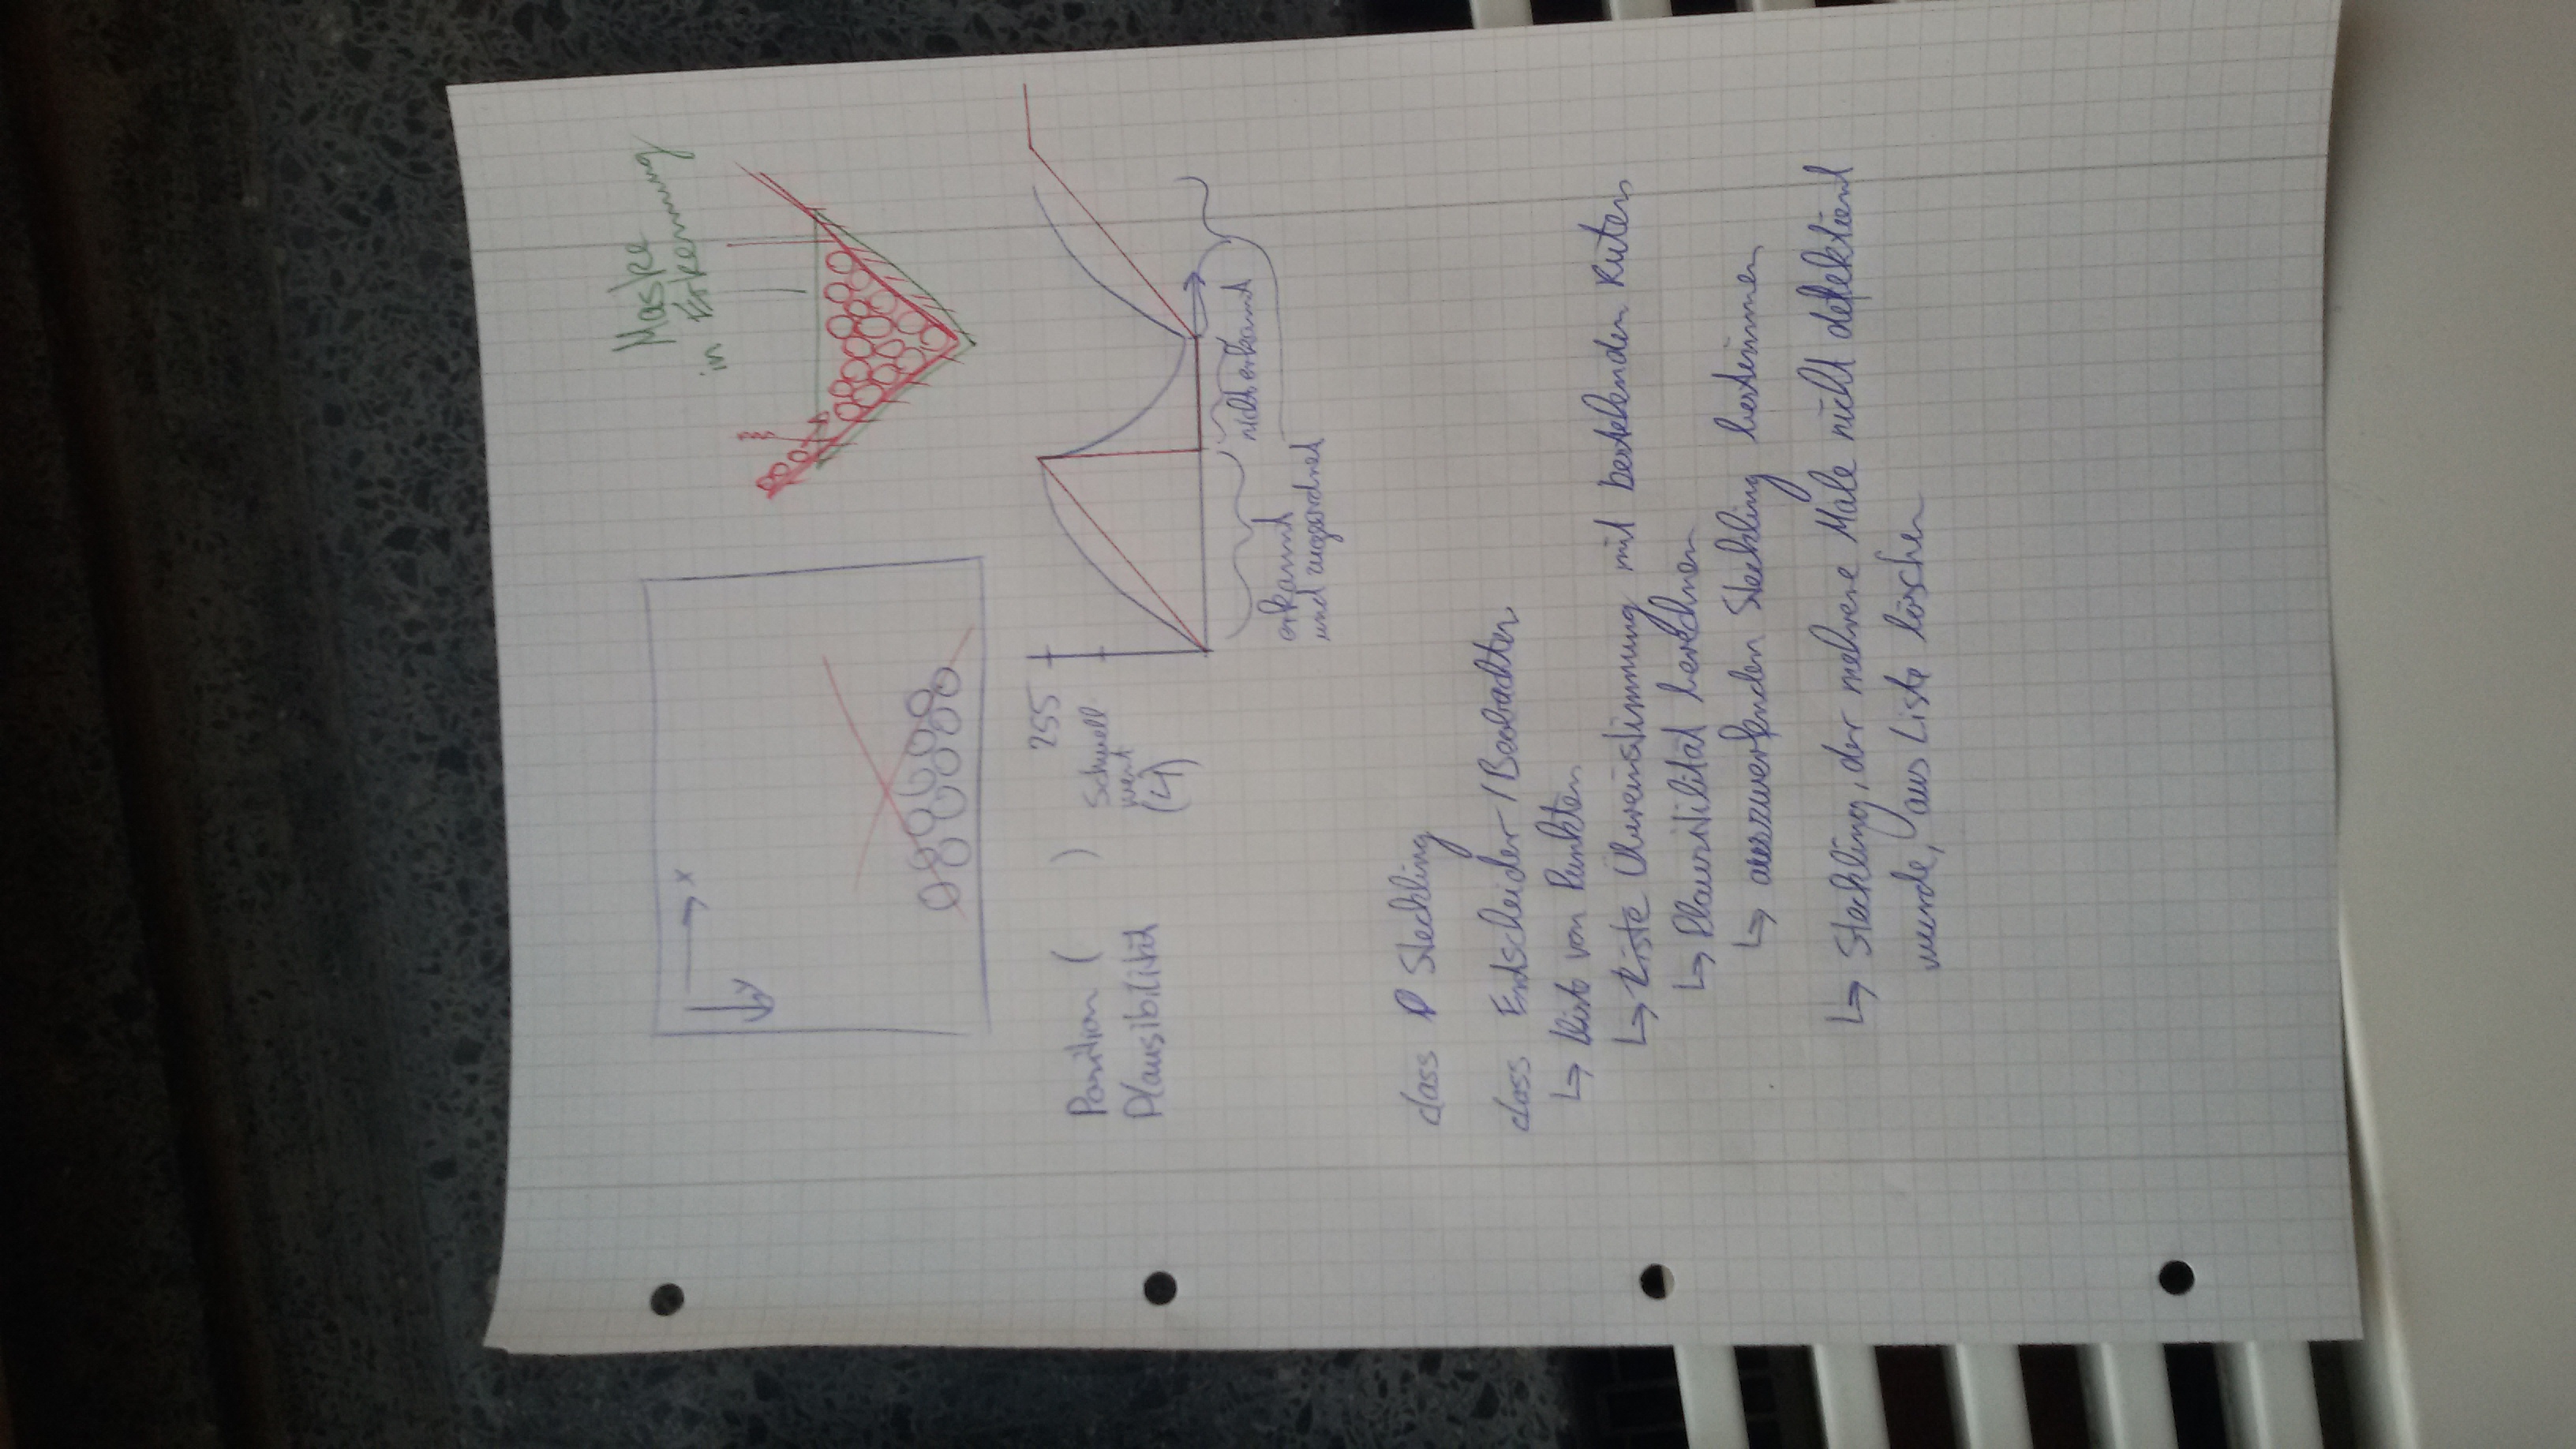 Maske
in Erkennung
x
y
Position ( )
Plausibilität
255
Schwell
wert
(4)
nicht erkannt
erkannt
und zugeordnet
class Steckling
class Entscheider/Beobachter
↳ Liste von Punkten
↳ Liste Übereinstimmung mit bestehenden Ruten
↳ Plausibilität berechnen
↳ auszuwerfenden Steckling bestimmen
↳ Steckling, der mehrere Male nicht detektiert
wurde, aus Liste löschen